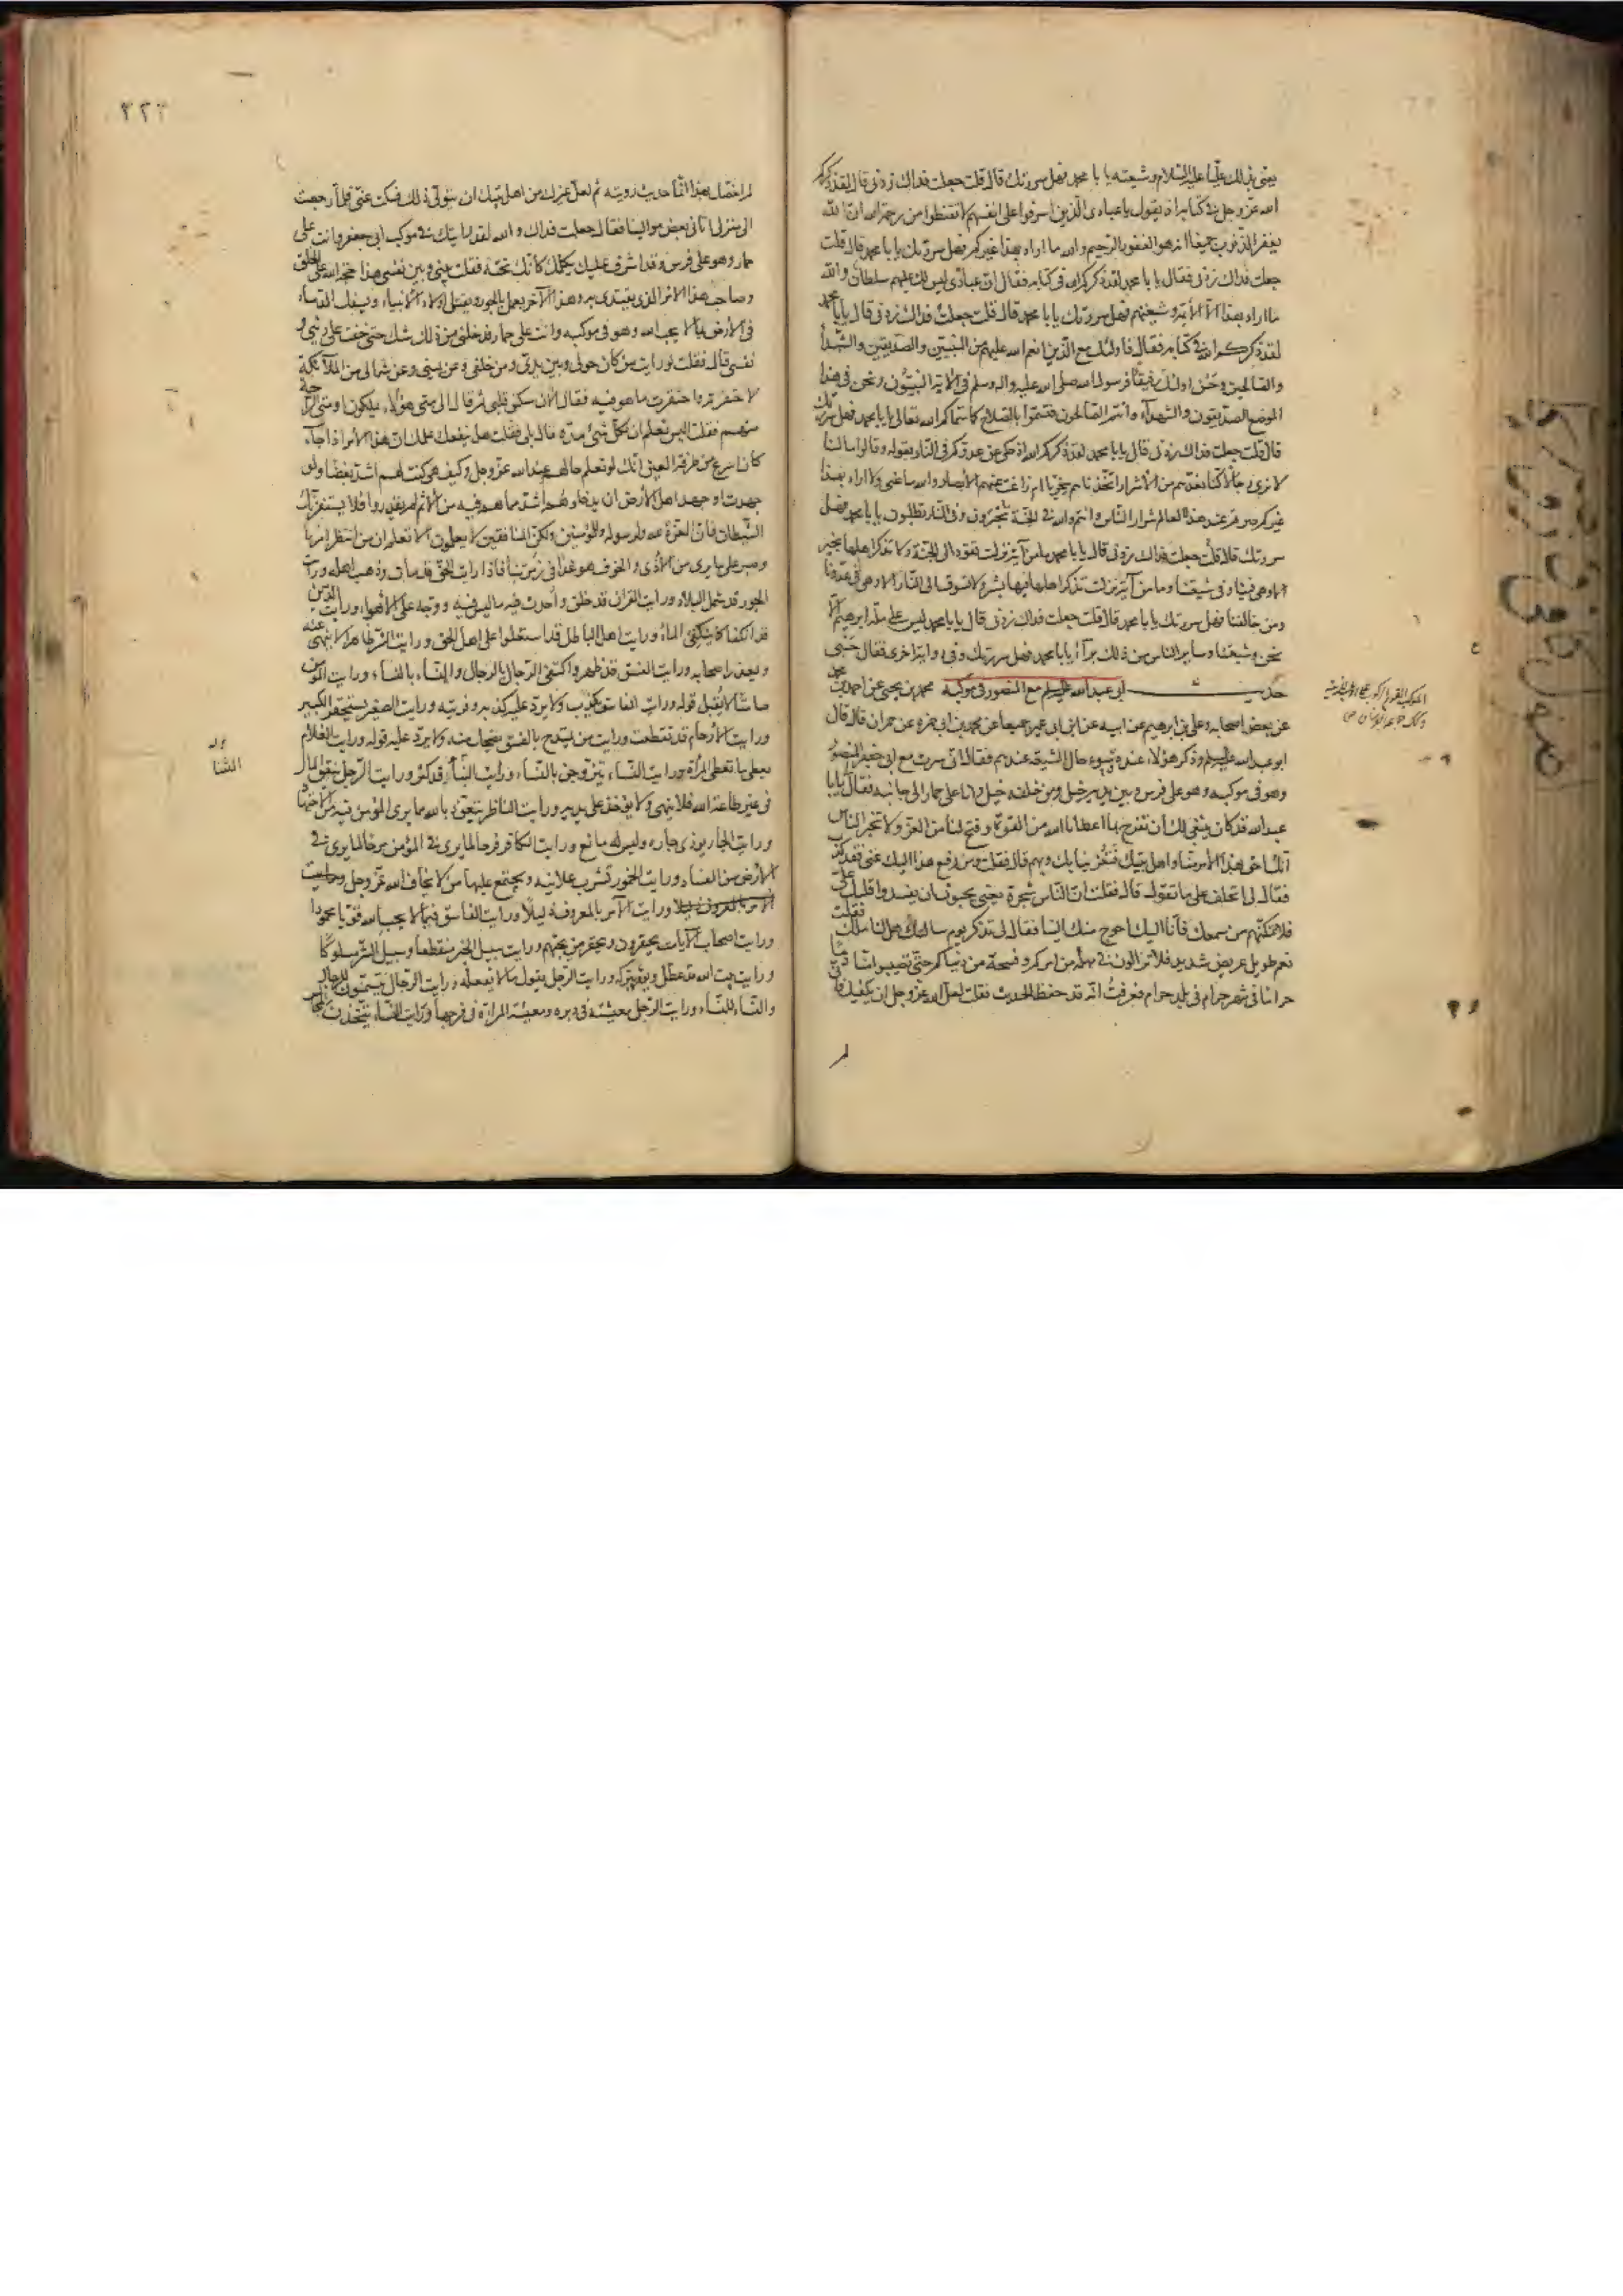 يعنى بذلك عليّا عليه السّلام وشيعته يا با محمد فهل سررتك قال قلت جعلت فداك زدنى قال لقد ذكركم
الله عزّ وجل فى كتابه اذ يقول يا عبادى الّذين اسرفوا على انفسهم لا تقنطوا من رحمة الله ان الله
يغفر الذّنوب جميعا انه هو الغفور الرّحيم والله ما اراد بهذا غيركم فهل سررتك يا با محمد قال قلت
جعلت فداك زدنى فقال يا با محمد لقد ذكركم الله فى كتابه فقال انّ عبادى ليس لك عليهم سلطان والله
ما اراد بهذا الّا الأئمة وشيعتهم فهل سررتك يا با محمد قال قلت جعلت فداك زدنى قال يا با محمد
لقد ذكركم الله فى كتابه فقال فاولئك مع الّذين انعم الله عليهم من النّبيّين والصدّيقين والشّهدآء
والصّالحين وحسن اولئك رفيقًا فرسول الله صلى الله عليه واله وسلم فى الاية النبيّون ونحن فى هذا
الموضع الصدّيقون والشهدآء وانتم الصّالحون فتسمّوا بالصّلاح كما سمّاكم الله تعالى يا با محمد فهل سررتك
قال قلت جعلت فداك زدنى قال يا با محمد لقد ذكركم الله اذ حكى عن عدوّكم فى النّار بقوله وقالوا ما لنا
لا نرى رجالًا كنّا نعدّهم من الأشرار اتّخذناهم سخريّا ام زاغت عنهم الأبصار والله ما عنى ولا اراد بهذا
غيركم صرتم عند هذا العالم شرار النّاس وانتم والله فى الجنّة تُحبرون وفى النّار تطلبون يا با محمد فهل
سررتك قال قلت جعلت فداك زدنى قال يا با محمد ما من آية نزلت تقود الى الجنّة ولا تذكر اهلها بخير
الا وهى فينا وفى شيعتنا وما من آية نزلت تذكر اهلها بشرّ ولا تسوق الى النّار الا وهى فى عدوّنا
ومن خالفنا فهل سررتك يا با محمد قال قلت جعلت فداك زدنى قال يا با محمد ليس على ملّة ابرهيم الّا
نحن وشيعتنا وساير النّاس من ذلك برآء يا با محمد فهل سررتك وفى رواية اخرى فقال حسبى
حديث ابى عبد الله عليه السلم مع المنصور فى موكبه محمد بن يحيى عن احمد بن محمد
عن بعض اصحابه وعلى بن ابرهيم عن ابيه عن ابن ابى عمير جميعا عن محمد بن ابى حمزه عن حمران قال قال
ابو عبد الله عليه السلم وذكر هؤلاء عنده وسوء حال الشيعة عندهم فقال انّى سرت مع ابى جعفر المنصور
وهو فى موكبه وهو على فرس وبين يديه خيل ومن خلفه خيل وانا على حمار الى جانبه فقال لى يا با
عبد الله قد كان ينبغى لك أن تفرح بما اعطانا الله من القوّة وفتح لنا من العزّ ولا تخبر النّاس
انّك احق بهذا الأمر منّا واهل بيتك فتغرينا بك وبهم قال فقلت ومن رفع هذا اليك عنّى فقد كذب
فقال لى اتحلف على ما تقول قال فقلت انّ النّاس سحرة يعنى يحبّون ان يفسدوا قلبك علىّ
فلا تمكّنهم من سمعك فأنّا اليك احوج منك الينا فقال لى تذكر يوم سالتك هل لنا ملك فقلت
نعم طويل عريض شديد فلا تزالون فى مهلة من امركم وفسحة من دنياكم حتّى تصيبوا منّا دمًا
حرامًا فى شهر حرام فى بلد حرام فعرفتُ انّه قد حفظ الحديث فقلت لعلّ الله عزّ وجل ان يكفيك فانّى
لم
٢٢٢
لم اخصّك بهذا انّما حديث رويته ثم لعلّ غيرك من اهل بيتك ان يتولّى ذلك فسكت عنّى فلمّا رجعت
الى منزلى اتانى بعض موالينا فقال جعلت فداك والله لقد رايتك فى موكب ابى جعفر وانت على
حمار وهو على فرس وقد اشرف عليك يكلّمك كأنّك تحته فقلت بينى وبين نفسى هذا حجّة الله على الخلق
وصاحب هذا الامر الذى يقتدى به وهذا الآخر يعمل بالجور ويقتل اولاد الأنبياء ويسفك الدّماء
فى الأرض بما لا يحب الله وهو فى موكبه وانت على حمار فدخلنى من ذلك شك حتى خفت على دينى و
نفسى قال فقلت لو رايت من كان حولى وبين يدىّ ومن خلفى وعن يمينى وعن شمالى من الملآئكة
لاحتقرته واحتقرت ما هو فيه فقال الآن سكن قلبى ثم قال الى متى هؤلاء يملكون او متى الرّاحة
منهم فقلت اليس تعلم ان لكلّ شىء مدّة قال بلى فقلت هل ينفعك علمك انّ هذا الأمر اذا جآء
كان اسرع من طرفة العين انّك لو تعلم حالهم عند الله عزّ وجل وكيف هى كنت لهم اشدّ بغضًا ولو
جهدت او جهد اهل الأرض ان يدخلوهم اشدّ مما هم فيه من الأثم لم يقدروا فلا يستفزّنك
الشّيطان فانّ العزّة لله ولرسوله وللمؤمنين ولكنّ المنافقين لا يعلمون ألا تعلم ان من انتظر امرنا
وصبر على ما يرى من الأذى والخوف هو غدًا فى زمرتنا فاذا رايت الحقّ قد مات وذهب اهله ورايت
الجور قد شمل البلاد ورايت القرآن قد خلق واُحدث فيه ما ليس فيه ووجّه على الأهواء ورايت الدّين
قد انكفا كما ينكفئ المآء ورايت اهل الباطل قد استعلوا على اهل الحق ورايت الشّرّ ظاهرًا لا ينهى عنه
ويعذر اصحابه ورايت الفسق قد ظهر واكتفى الرّجال بالرجال والنّساء بالنّساء ورايت المؤمن
صامتًا لا يُقبل قوله ورايت الفاسق يكذب ولا يردّ عليه كذبه وفريته ورايت الصغير يستحقر الكبير
ورايت الأرحام قد تقطعت ورايت من يمتدح بالفسق يضحك منه ولا يردّ عليه قوله ورايت الغلام
يعطى ما تعطى المرأة ورايت النّساء يتزوجن بالنّساء ورايت الثّناء قد كثر ورايت الرّجل ينفق المال
فى غير طاعة الله فلا ينهى ولا يؤخذ على يديه ورايت الناظر يتعوّذ بالله مما يرى المؤمن فيه من الأجتهاد
ورايت الجار يوذى جاره وليس له مانع ورايت الكافر فرحًا لما يرى فى المؤمن مرحًا لما يرى فى
الأرض من الفساد ورايت الخمور تشرب علانية ويجتمع عليها من لا يخاف الله عزّ وجل ورايت
الأمر بالمعروف ذليلا ورايت الآمر بالمعروف ذليلًا ورايت الفاسق فيما لا يحب الله قويّا محمودا
ورايت اصحاب الآيات يحقرون ويحتقر من يحبّهم ورايت سبيل الخير منقطعًا وسبيل الشّرّ مسلوكًا
ورايت بيت الله قد عطّل ويؤمر بتركه ورايت الرّجل يقول ما لا يفعله ورايت الرّجال يتسمّنون للرّجال
والنّساء للنّساء ورايت الرّجل معيشته فى دبره ومعيشة المرأة فى فرجها ورايت النّساء يتّخذن المجالس
الثنا